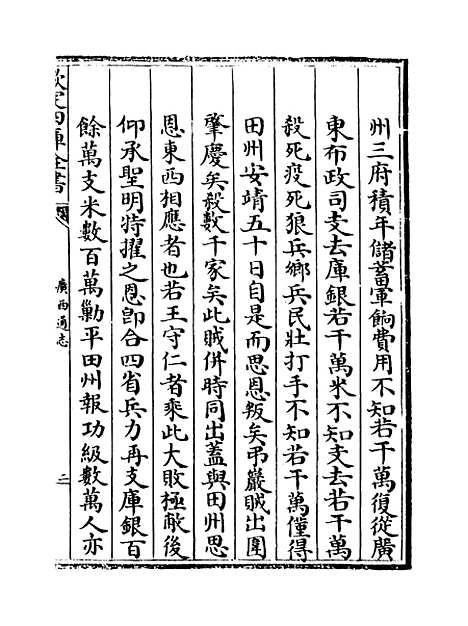 州三府積年儲畜軍餉費用不知若干萬復從廣
東布政司支去庫銀若干萬米不知支去若干萬
殺死疫死狼兵鄉兵民壯打手不知若干萬僅得
田州安靖五十日自是而思恩叛矣弔巖賊出圍
肇慶矣殺數千家矣此賊併時同出蓋與田州思
恩東西相應者也若王守仁者乘此大敗極敝後
仰承聖明特擢之恩卽合四省兵力再支庫銀百
餘萬支米數百萬勦平田州報功級數萬人亦
欽定四庫全書
廣西通志
二